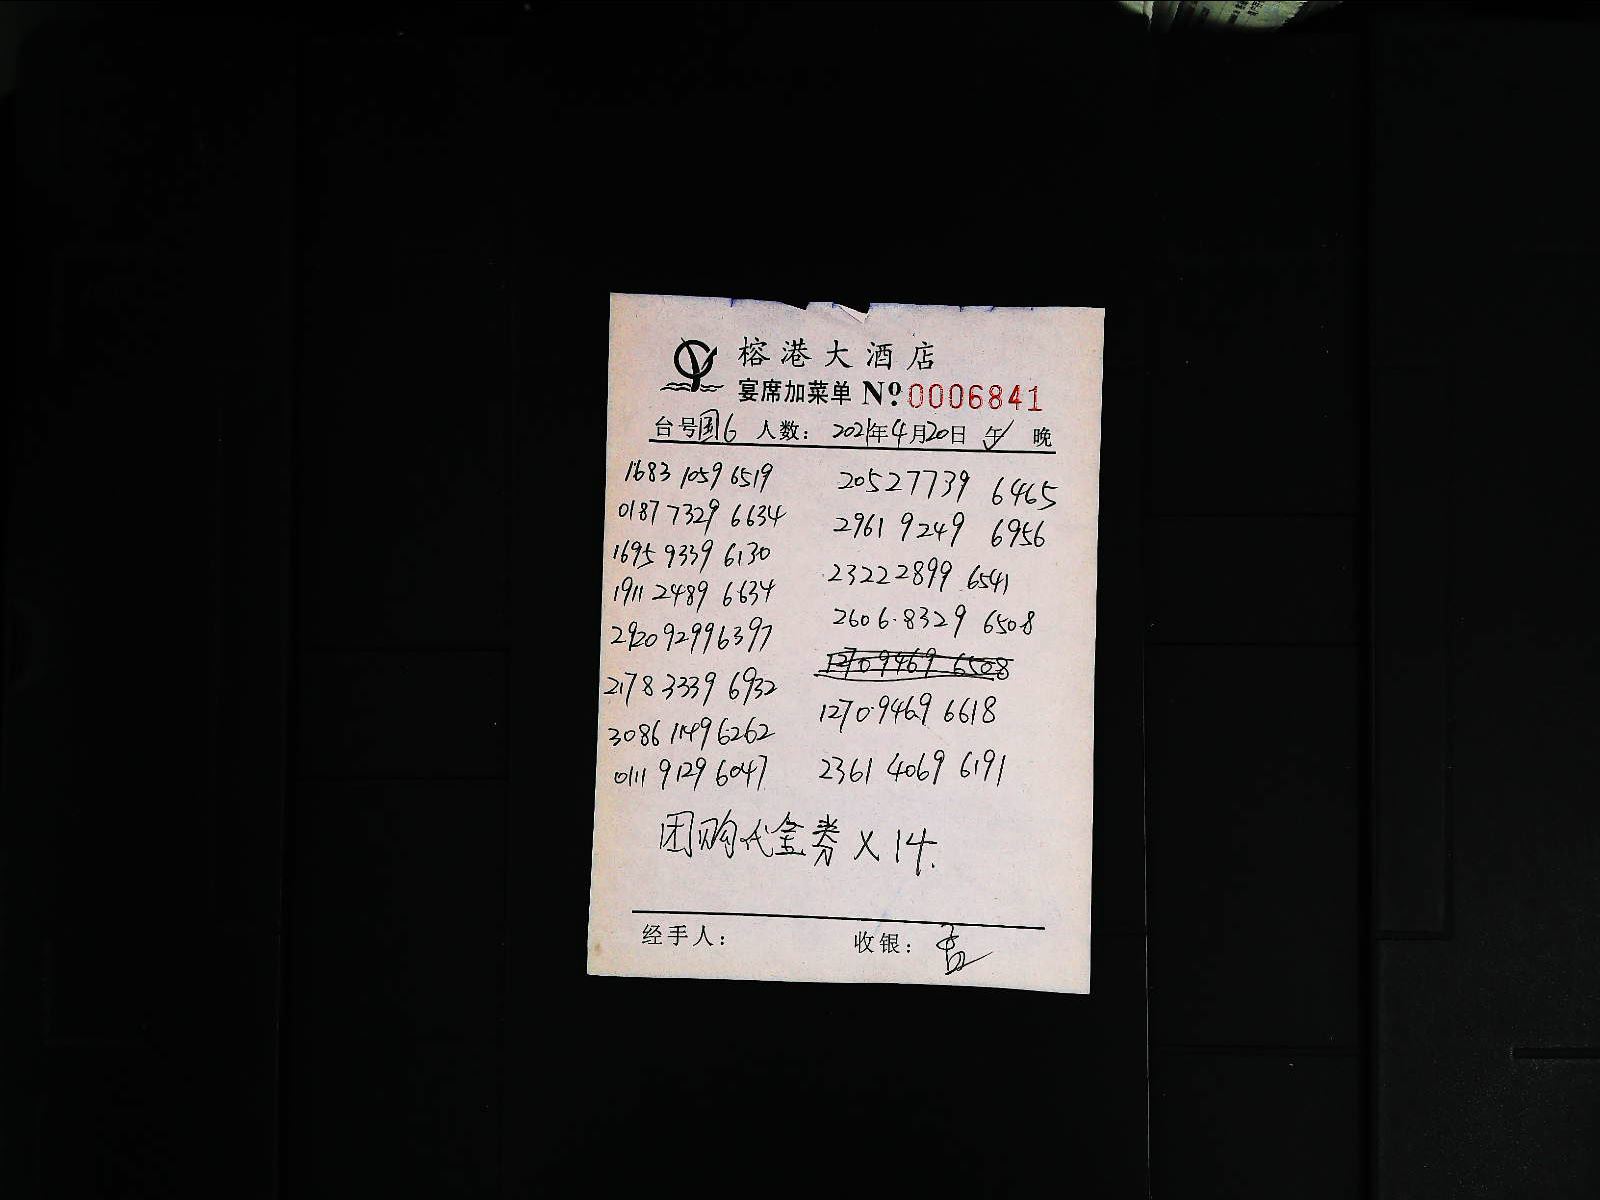 榕港大酒店
宴席加菜单 Nº 0006841
台号国6 人数： 2021年4月20日 午 晚
1683 1059 6519
0187 7329 6634
1695 9339 6130
1911 2489 6634
2920 9299 6397
2178 3339 6932
3086 1149 6262
0111 9129 6047
2052 7739 6465
2961 9249 6956
2322 2899 6541
2606 8329 6508
1270 9469 6508
1270 9469 6618
2361 4069 6191
团购代金券 X 14.
经手人： 收银：